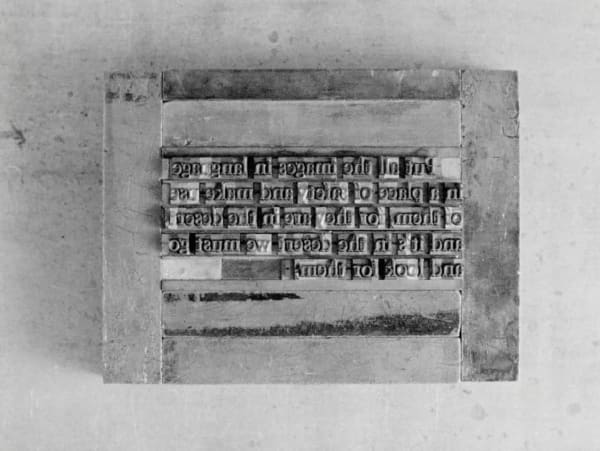 Put all the images in language
in a place of safety and make use
of them, for they are in the desert
and it's in the desert we must go
and look for them.